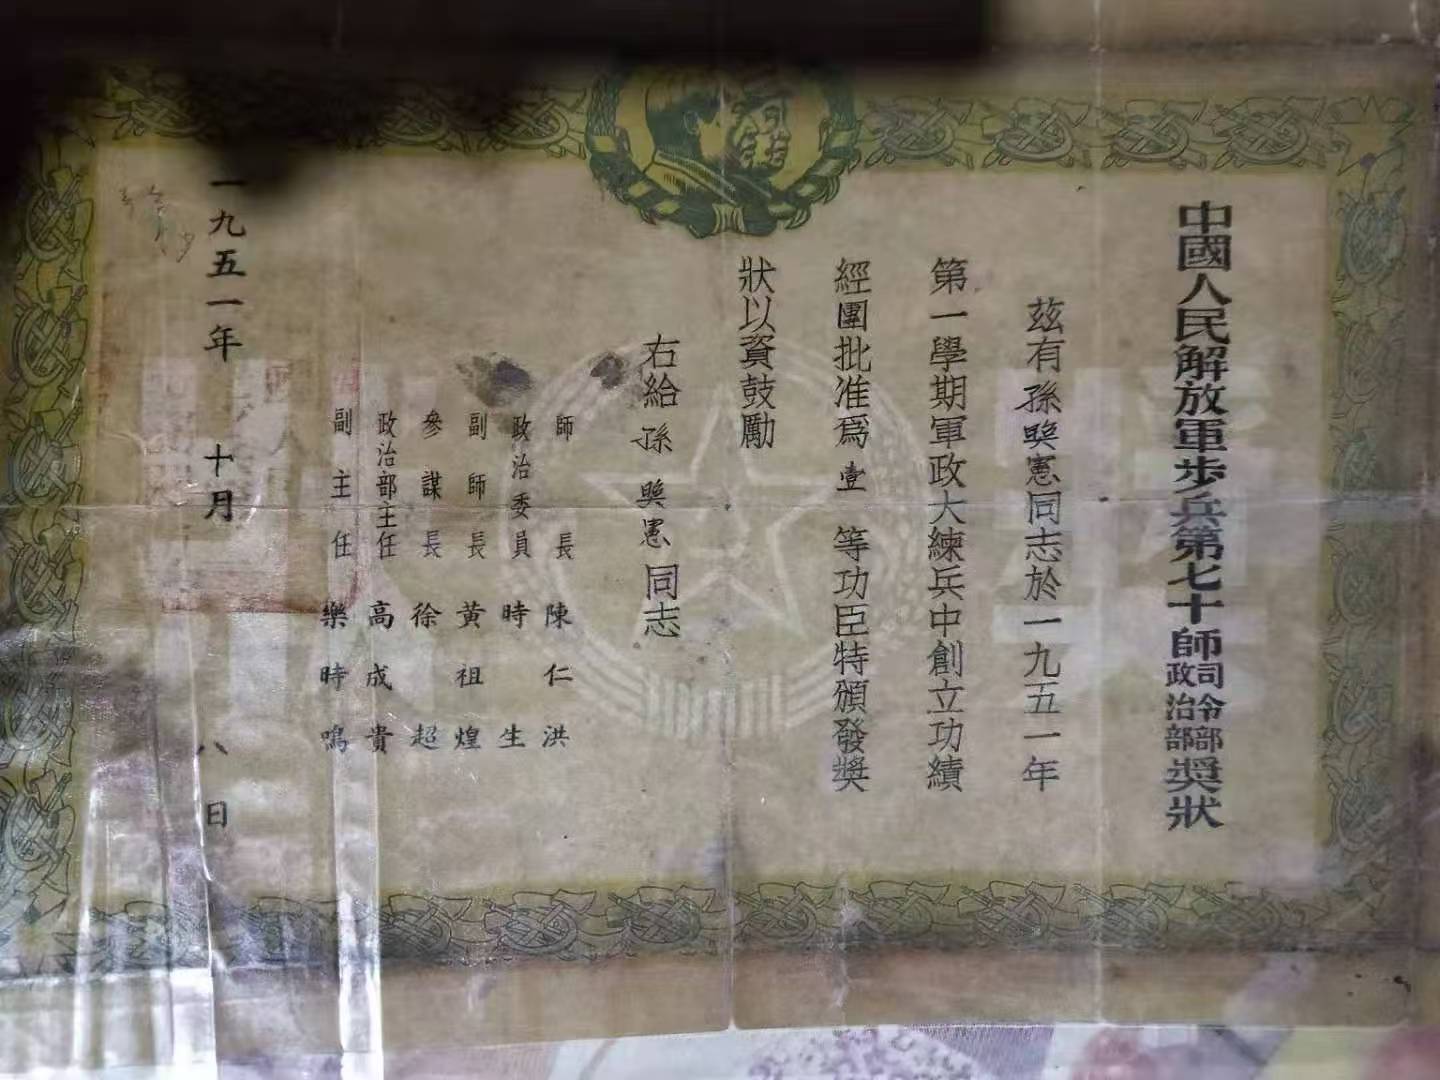 中國人民解放軍步兵第七十師司令部政治部獎狀
茲有孫煥憲同志於一九五一年
第一學期軍政大練兵中創立功績
經團批准爲壹等功臣特頒發獎
狀以資鼓勵
右給孫煥憲同志
師長 陳仁洪
政治委員 時生
副師長 黃祖煌
參謀長 徐超
政治部主任 高成貴
副主任 樂時鳴
一九五一年十月八日